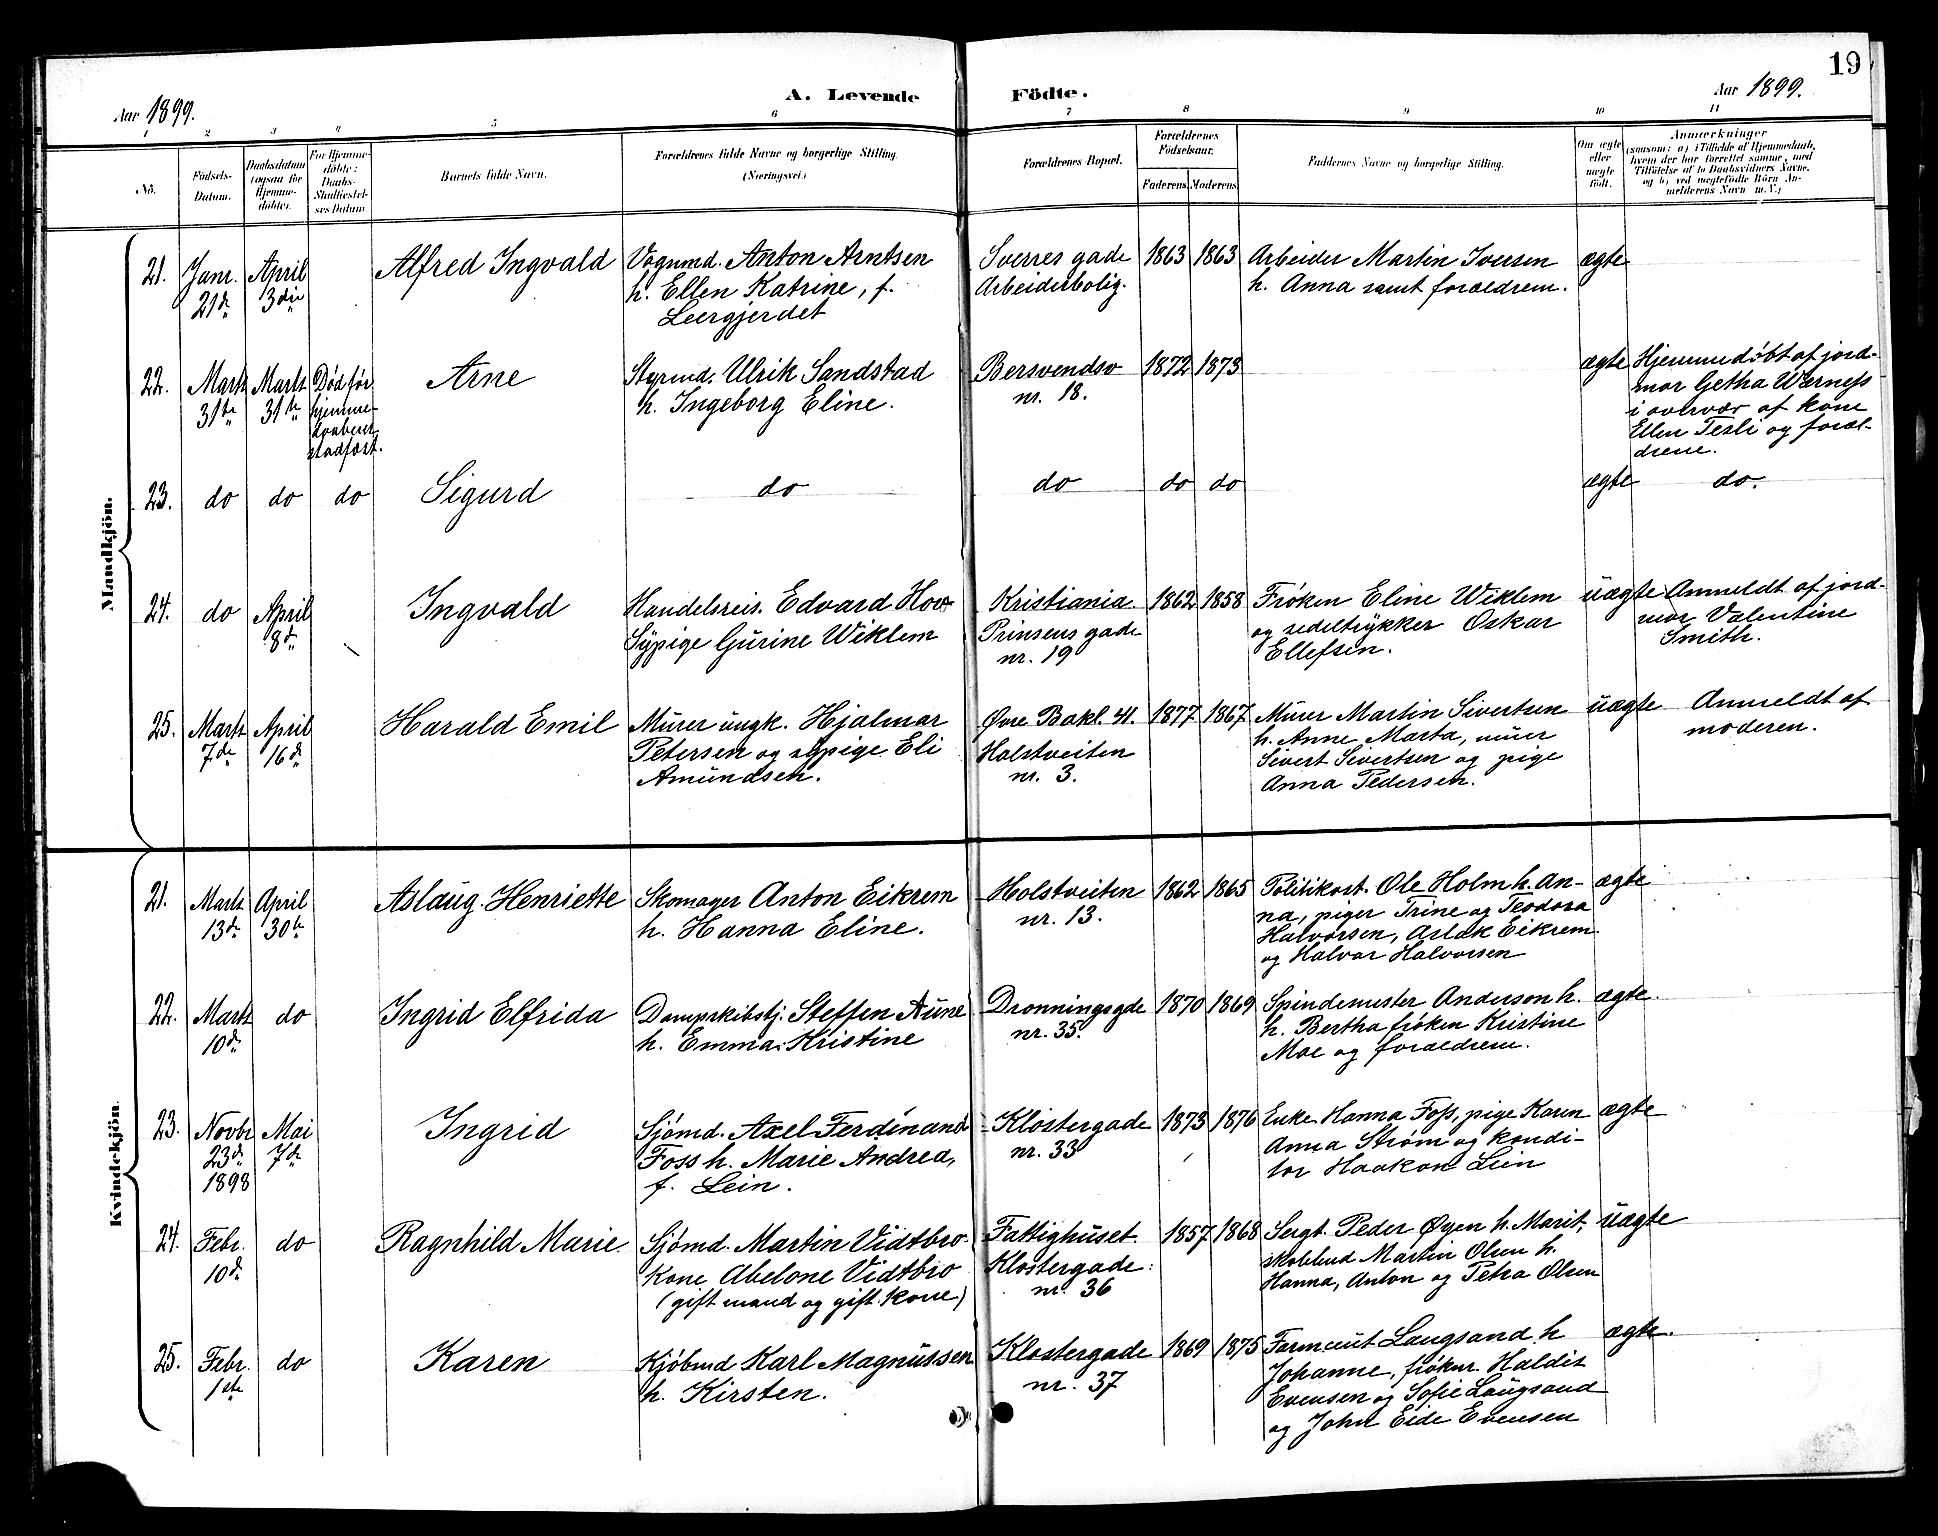 19
Aar 1899.
A. Levende Födte.
Aar 1899.
1 2 3 4 5 6 7 8 9 10 11
No.
Födsels-
Datum.
Daabsdatum
(ogsaa for
Hjemme-
döbte).
For Hjemme-
döbte:
Daabs-
Stadfæstel-
ses Datum
Barnets fulde Navn.
Forældrenes fulde Navne og borgerlige Stilling.
(Næringsvei.)
Forældrenes Bopæl.
Forældrenes
Födselsaar.
Faderens Moderens
Faddernes Navne og borgerlige Stilling.
Om ægte
eller
uægte
födt.
Anmærkninger
(saasom: a) i Tilfælde af Hjemmedaab,
hvem der har forrettet samme, med
Tilföielse af to Daabsvidners Navne,
og b) ved uægtefödte Börn An-
melderens Navn m. V.)
Mandkjön.
21. Janr. 21de
April 3die
Alfred Ingvald
Vognmd. Anton Arntsen
h. Ellen Katrine, f.
Leergjerdet
Sverres gade
Arbeiderbolig.
1863 1863
Arbeider Martin Iversen
h. Anna samt forældrene.
ægte
22. Marts 31te
Marts 31te
Død før
hjemme-
daaben
stadfæst.
Arne
Styrmd. Ulrik Sandstad
h. Ingeborg Eline.
Bersvendsv
nr. 18.
1872 1873
ægte
Hjemmedøbt af jord-
mor Getha Wærness
i overvær af kone
Ellen Tesli og foræl-
drene.
23. do do do
Sigurd
do
do
do do
ægte
do.
24. do
April 8de
Ingvald
Handelsreis. Edvard Hov
Sypige Gurine Wiklem
Kristiania.
Prinsens gade
nr. 19
1862 1858
Frøken Eline Wiklem
og sedeltrykker Oskar
Ellefsen.
uægte
Anmeldt af jord-
mor Valentine
Smith.
25. Marts 7de
April 16de
Harald Emil
Murer ungk. Hjalmar
Petersen og sypige Eli
Amundsen.
Øvre Bakl. 41.
Holstveiten
nr. 3.
1877 1867
Murer Martin Sivertsen
h. Anne Marta, murer
Sivert Sivertsen og pige
Anna Pedersen.
uægte
Anmeldt af
moderen.
Kvindekjön.
21. Marts 13de
April 30te
Aslaug Henriette
Skomager Anton Eikrem
h. Hanna Eline.
Holstveiten
nr. 13.
1862 1865
Politikost. Ole Holm h. An-
na, piger Trine og Teodora
Halvorsen, Aslak Eikrem
og Halvar Halvorsen
ægte
22. Marts 10de
do
Ingrid Elfrida
Dampskibstj. Steffen Aune
h. Emma Kristine
Dronningsgde
nr. 35.
1870 1869
Spindemester Anderson h.
h. Bertha frøken Kristine
Moe og forældrene.
ægte.
23. Novbr 23de 1898
Mai 7de
Ingrid
Sjømd. Axel Ferdinand
Foss h. Marie Andrea,
f. Lein.
Klostergade
nr. 33
1873 1876
Enke Hanna Foss, pige Karen
Anna Strøm og kondi-
tor Haakon Lein
ægte
24. Febr. 10de
do
Ragnhild Marie
Sjømd. Martin Vidtbro
Kone Abelone Vidtbro
(gift mand og gift kone)
Fattighuset.
Klostergade
nr. 36
1857 1868
Sergt. Peder Øyen h. Marit,
Martin Olsen h.
Hanna, Anton og Petra Olsen
uægte
25. Febr. 1ste
do
Karen
Kjøbmd Karl Magnussen
h. Kirsten.
Klostergade
nr. 37
1869 1875
Langsand h
Johanne, frøkner Haldis
Evensen og Sofie Langsand
og John Eide Evensen
ægte.